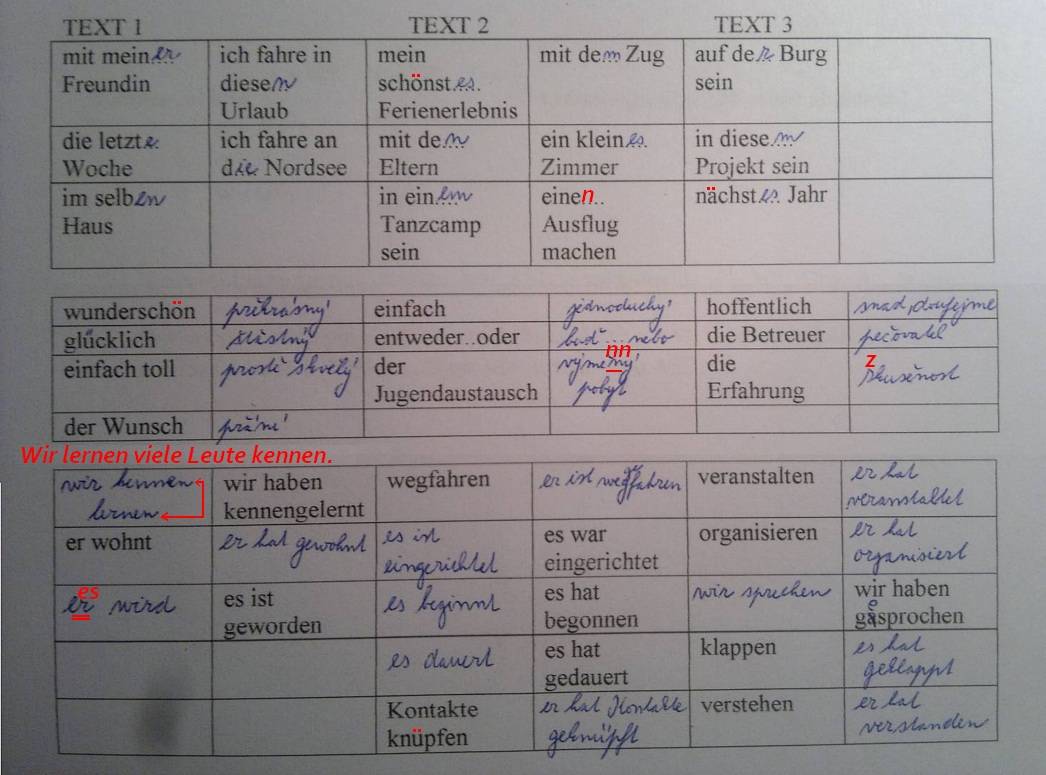 TEXT 1
TEXT 2
TEXT 3
mit meiner
Freundin
ich fahre in
diesen
Urlaub
mein
schönstes
Ferienerlebnis
mit dem Zug
auf der Burg
sein
die letzte
Woche
ich fahre an
die Nordsee
mit den
Eltern
ein kleines
Zimmer
in diesem
Projekt sein
im selben
Haus
in einem
Tanzcamp
sein
einen..
Ausflug
machen
nächstes Jahr
wunderschön
překrásný
einfach
jednoduchý
hoffentlich
snad, doufejme
glücklich
šťastný
entweder..oder
buď ... nebo
die Betreuer
pečovatel
einfach toll
prostě skvělý
der
Jugendaustausch
nn
výmený
pobyt
die
Erfahrung
z
skušenost
der Wunsch
přání
Wir lernen viele Leute kennen.
wir kennen
lernen
wir haben
kennengelernt
wegfahren
er ist weggefahren
veranstalten
er hat
veranstaltet
er wohnt
er hat gewohnt
es ist
eingerichtet
es war
eingerichtet
organisieren
er hat
organisiert
es
er wird
es ist
geworden
es beginnt
es hat
begonnen
wir sprechen
wir haben
gesprochen
es dauert
es hat
gedauert
klappen
es hat
geklappt
Kontakte
knüpfen
er hat Kontakte
geknüpft
verstehen
er hat
verstanden